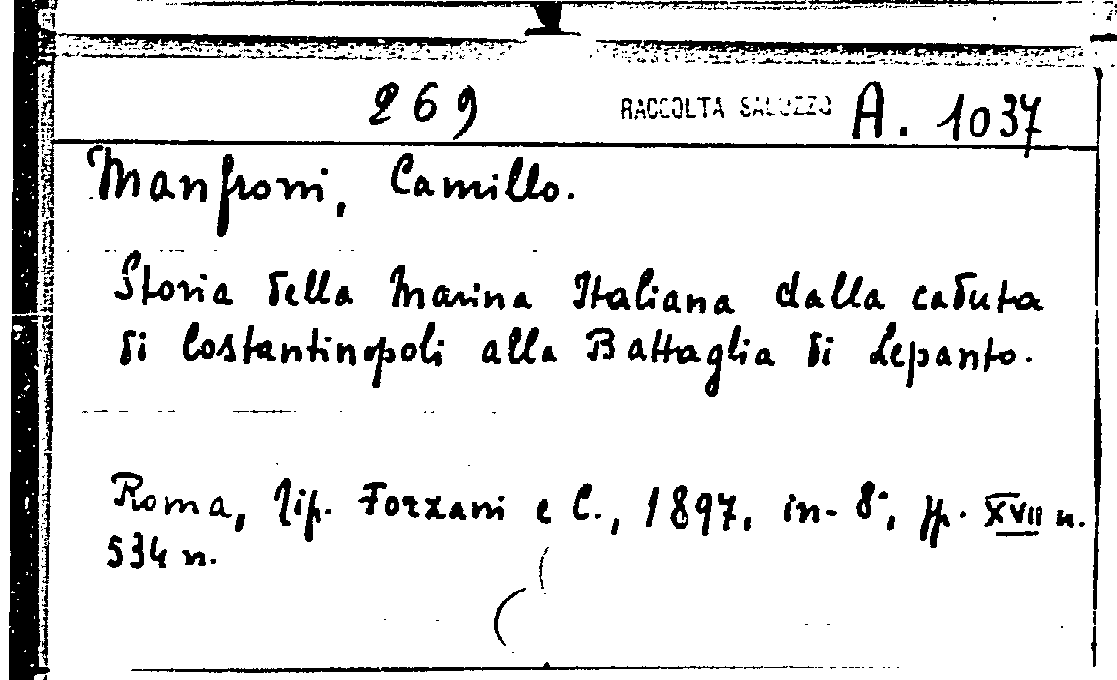 269 RACCOLTA SALUZZO A. 1037
Manfroni, Camillo.
Storia della Marina Italiana dalla caduta
di Costantinopoli alla Battaglia di Lepanto.
Roma, Tip. Forzani e C., 1897, in-8°, pp. XVII n.
534 n.